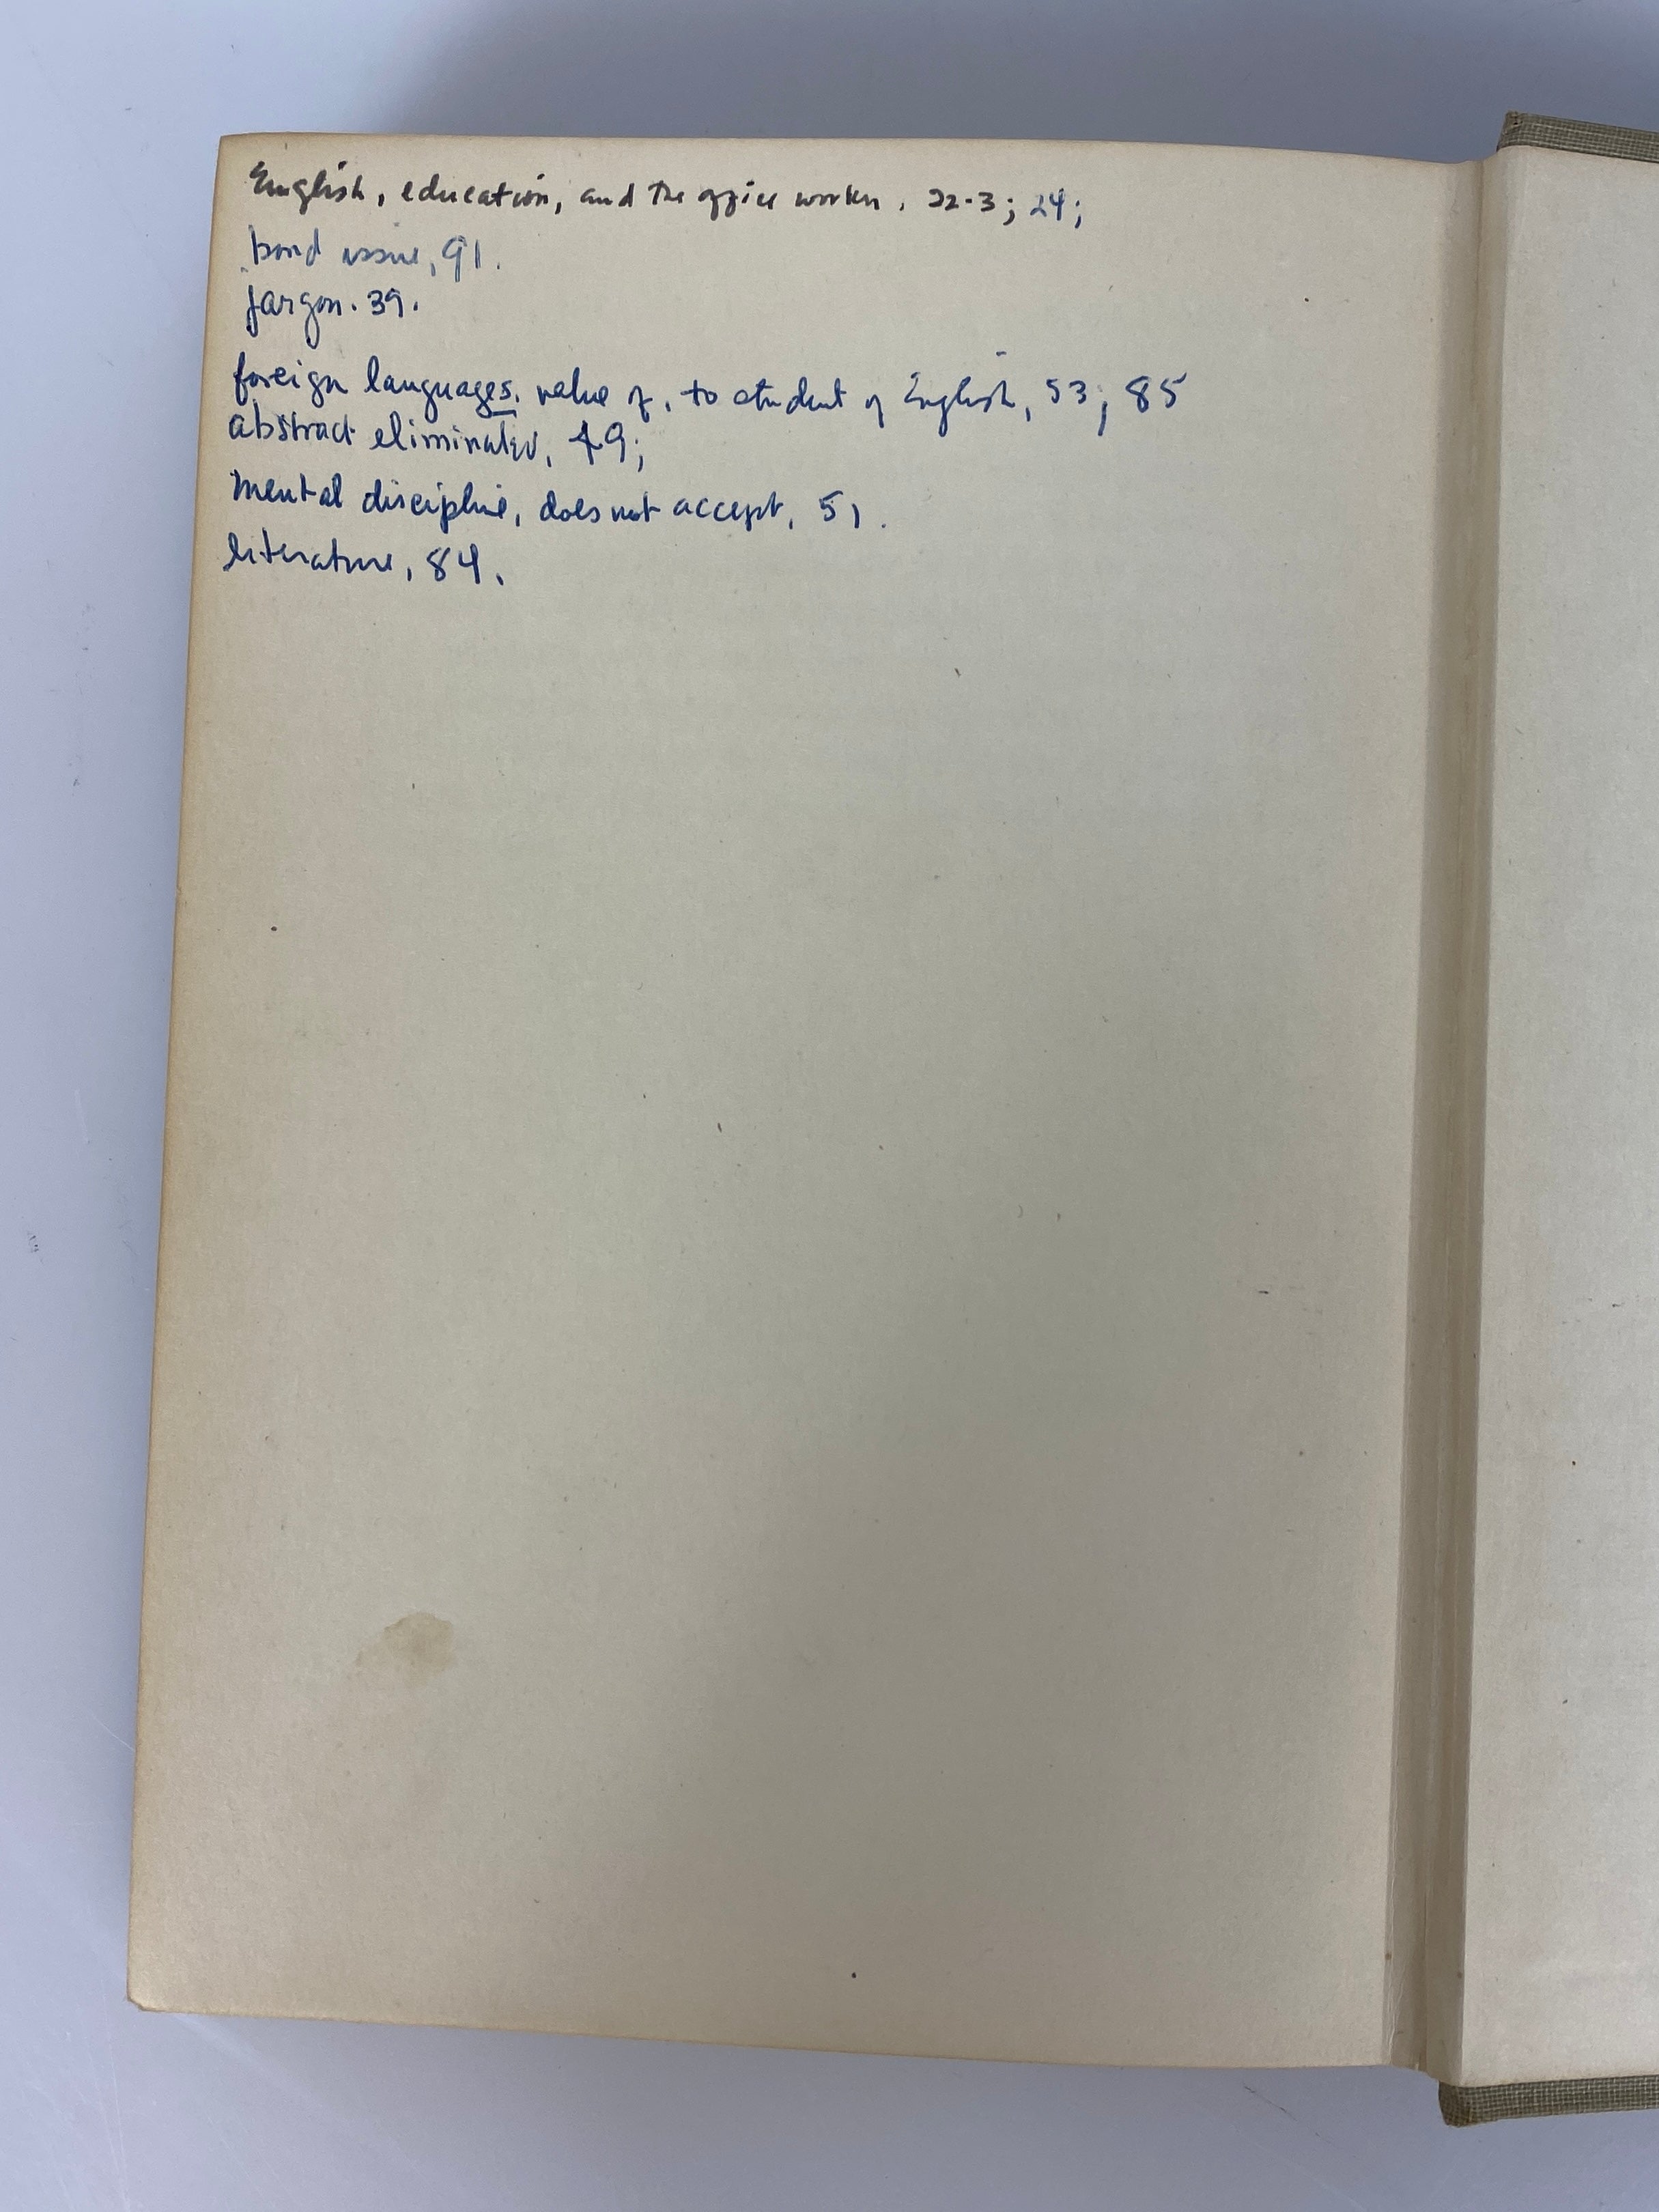 English, education, and the office worker. 22-3; 24;
bond issue, 91.
jargon. 39.
foreign languages, value of, to student of English, 53; 85
abstract eliminated, 49;
mental discipline, does not accept, 51.
literature, 84.